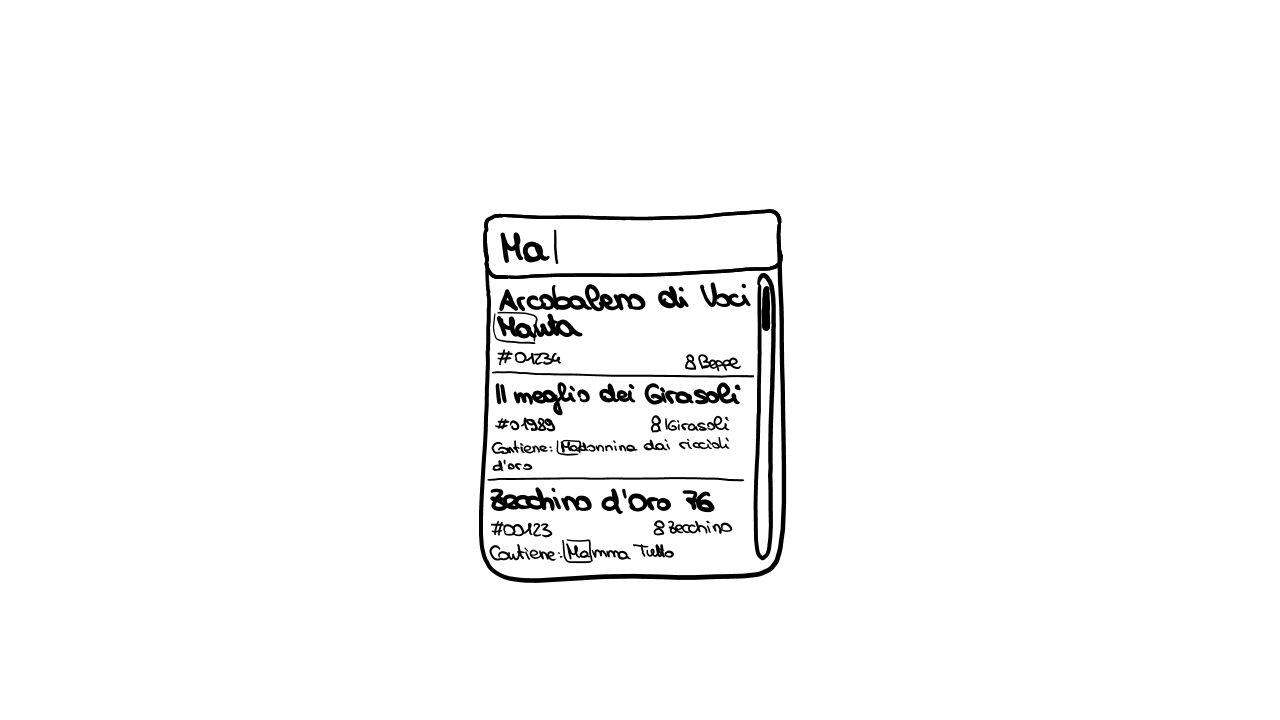 Ma
Arcobaleno di Voci
Manta
#01234
Beppe
Il meglio dei Girasoli
#01989
IGirasoli
Contiene: Madonnina dai riccioli
d'oro
Zecchino d'Oro 76
#00123
Zecchino
Contiene: Mamma Tutto